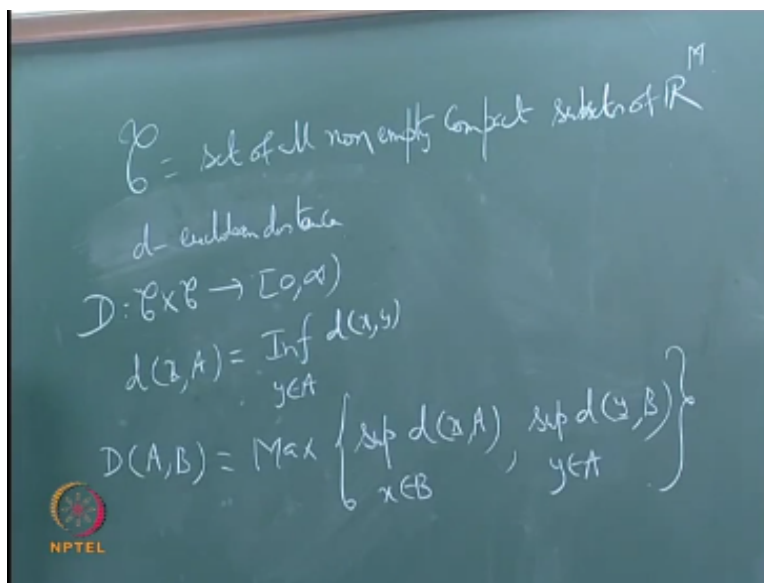 𝒞 = set of all non empty compact subsets of ℝ^M
d - euclidean distance
D : 𝒞 x 𝒞 → [0, ∞)
d(x, A) = Inf d(x, y)
y∈A
D(A, B) = Max { sup d(x, A), sup d(y, B) }
x∈B y∈A
NPTEL